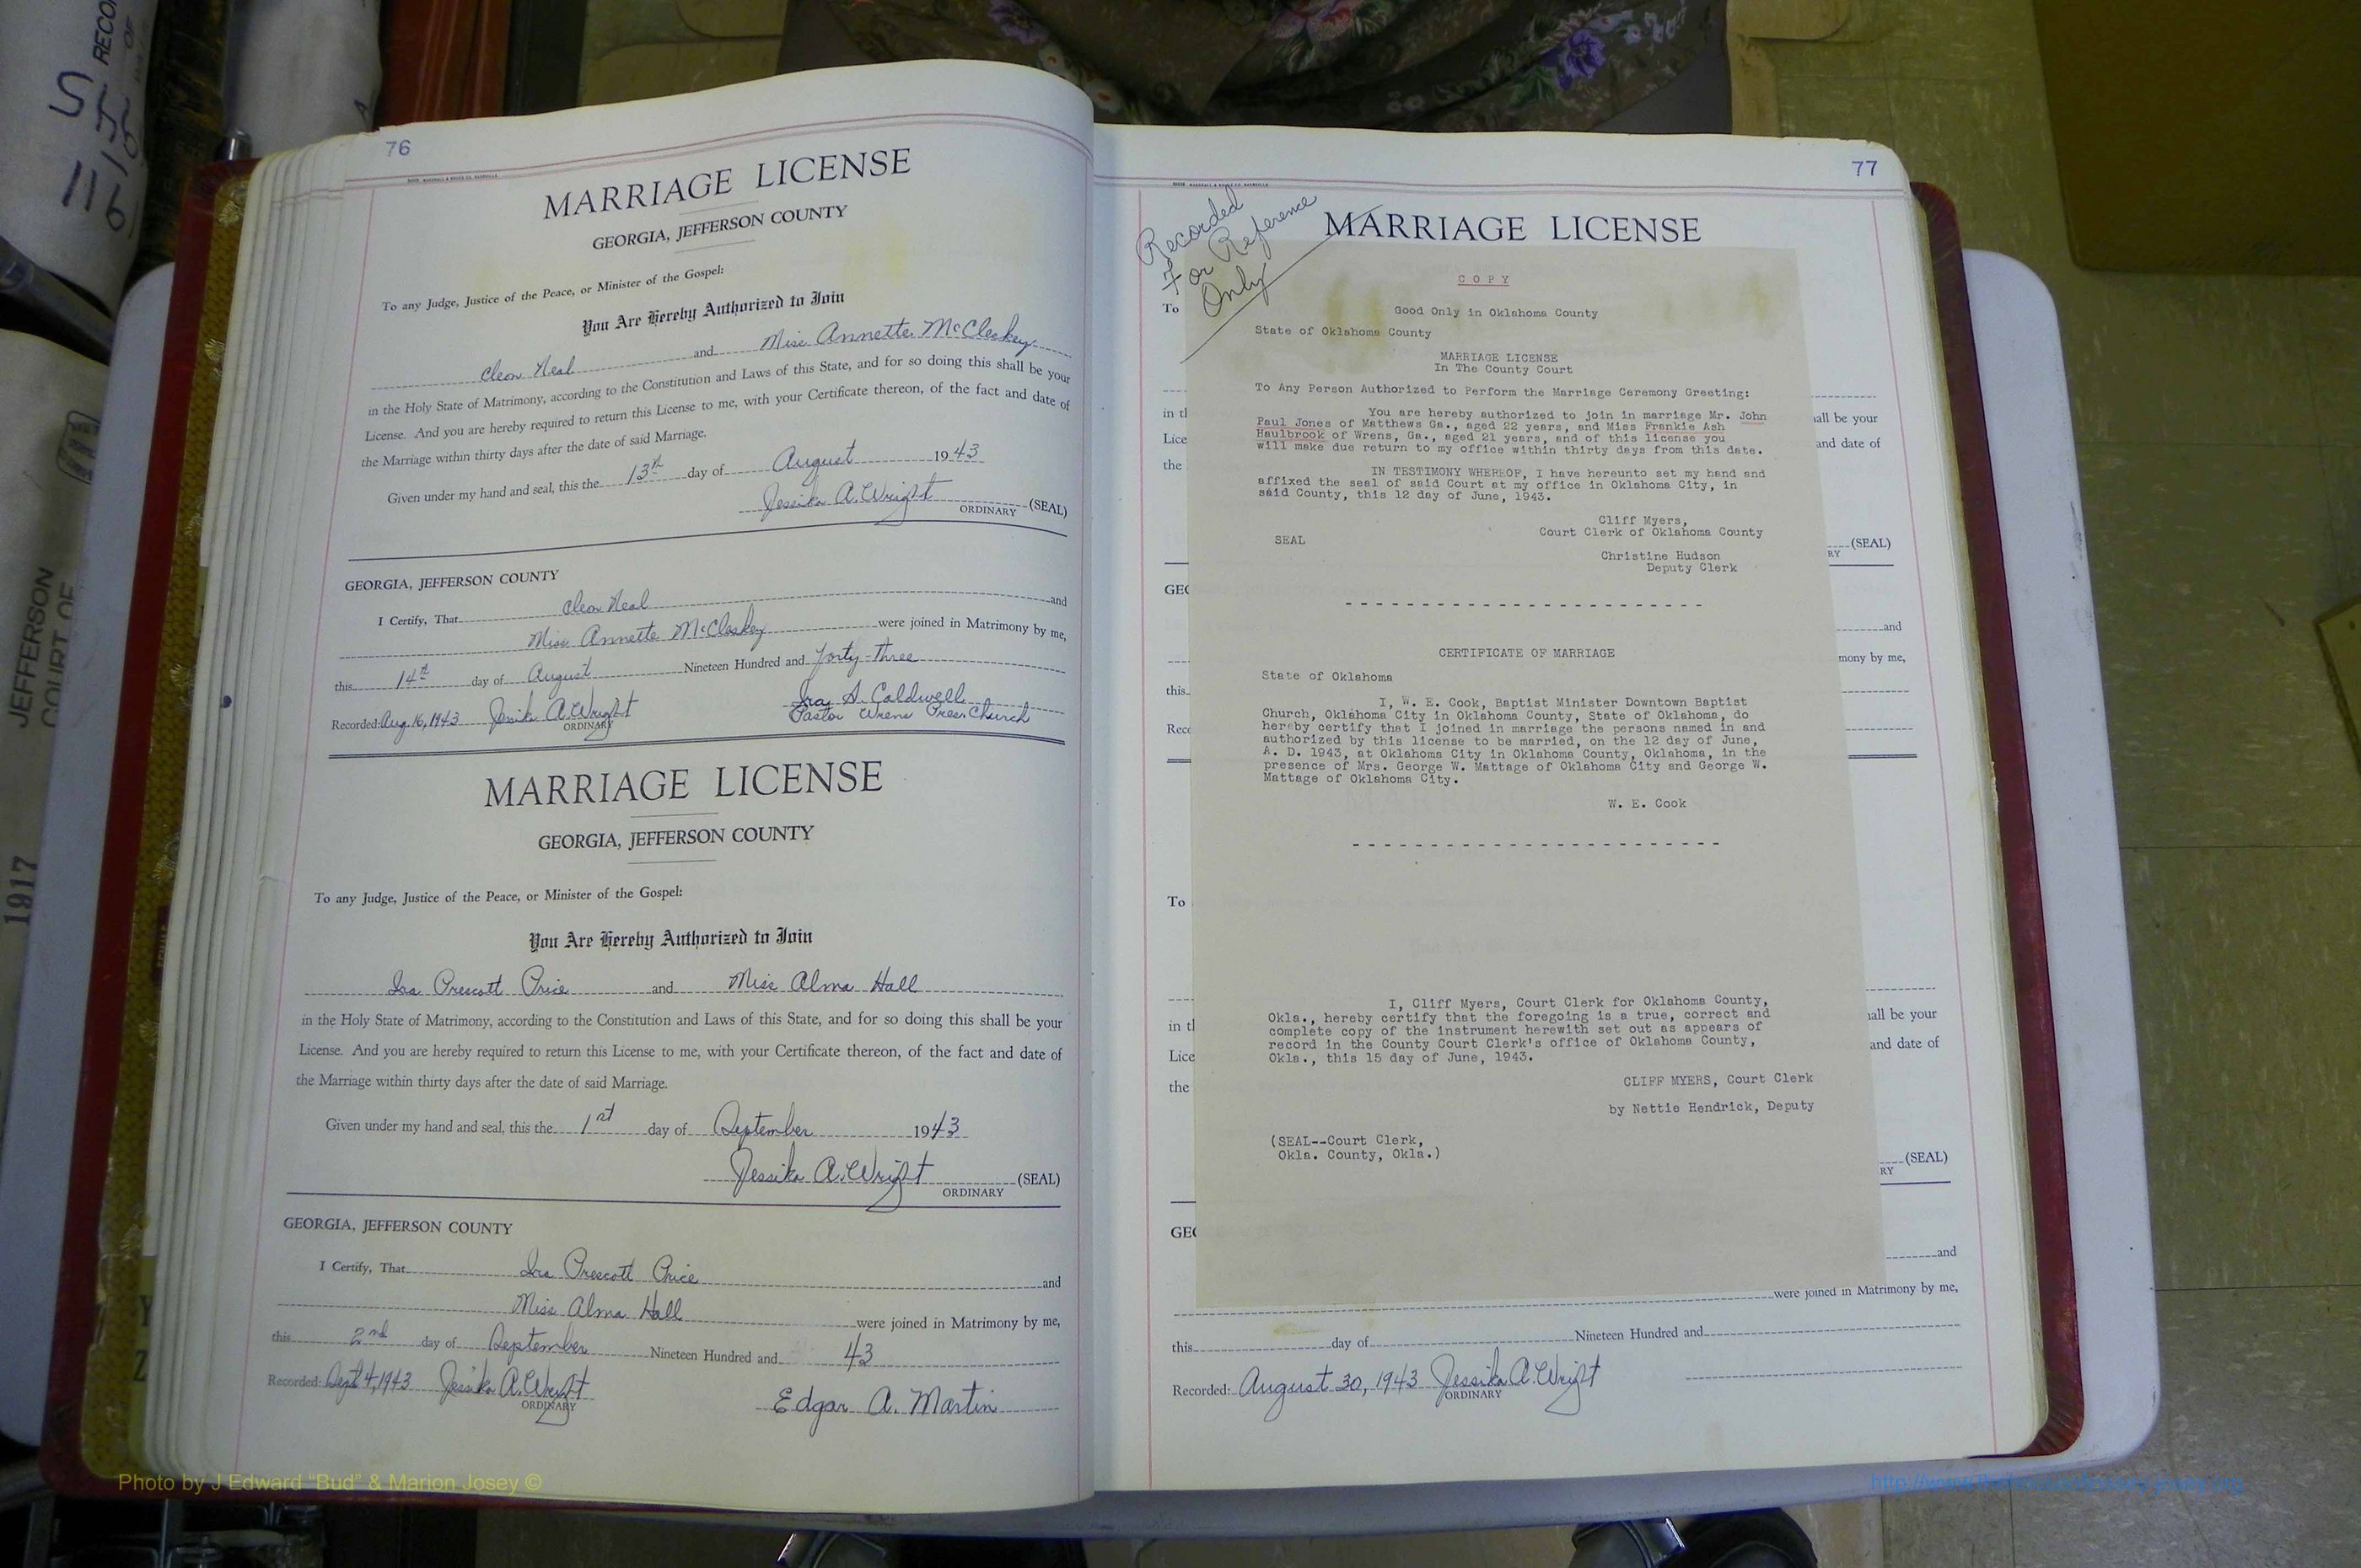 S
11-15
RECO
JEFFERSON
COURT OF
1917
76
MARRIAGE LICENSE
GEORGIA, JEFFERSON COUNTY
To any Judge, Justice of the Peace, or Minister of the Gospel:
You Are Hereby Authorized to Join
Cleon Neal and Miss Annette McCloskey
in the Holy State of Matrimony, according to the Constitution and Laws of this State, and for so doing this shall be your
License. And you are hereby required to return this License to me, with your Certificate thereon, of the fact and date of
the Marriage within thirty days after the date of said Marriage.
Given under my hand and seal, this the 13th day of August 1943
Jessika A. Wright (SEAL)
ORDINARY
GEORGIA, JEFFERSON COUNTY
I Certify, That Cleon Neal and
Miss Annette McCloskey were joined in Matrimony by me,
this 14th day of August Nineteen Hundred and forty-three
Ira S. Caldwell
Recorded: Aug. 16, 1943 Jessika A. Wright Pastor Wrens Pres. Church
ORDINARY
MARRIAGE LICENSE
GEORGIA, JEFFERSON COUNTY
To any Judge, Justice of the Peace, or Minister of the Gospel:
You Are Hereby Authorized to Join
Ira Prescott Price and Miss Alma Hall
in the Holy State of Matrimony, according to the Constitution and Laws of this State, and for so doing this shall be your
License. And you are hereby required to return this License to me, with your Certificate thereon, of the fact and date of
the Marriage within thirty days after the date of said Marriage.
Given under my hand and seal, this the 1st day of September 1943
Jessika A. Wright (SEAL)
ORDINARY
GEORGIA, JEFFERSON COUNTY
I Certify, That Ira Prescott Price and
Miss Alma Hall
were joined in Matrimony by me,
this 2nd day of September Nineteen Hundred and 43
Recorded: Sept 4, 1943 Jessika A. Wright
ORDINARY
Edgar A. Martin
77
MARRIAGE LICENSE
Recorded
For Reference
Only
COPY
Good Only in Oklahoma County
State of Oklahoma County
MARRIAGE LICENSE
In The County Court
To Any Person Authorized to Perform the Marriage Ceremony Greeting:
You are hereby authorized to join in marriage Mr. John
Paul Jones of Matthews Ga., aged 22 years, and Miss Frankie Ash
Haulbrook of Wrens, Ga., aged 21 years, and of this license you
will make due return to my office within thirty days from this date.
IN TESTIMONY WHEREOF, I have hereunto set my hand and
affixed the seal of said Court at my office in Oklahoma City, in
said County, this 12 day of June, 1943.
Cliff Myers,
Court Clerk of Oklahoma County
SEAL
Christine Hudson
Deputy Clerk
CERTIFICATE OF MARRIAGE
State of Oklahoma
I, W. E. Cook, Baptist Minister Downtown Baptist
Church, Oklahoma City in Oklahoma County, State of Oklahoma, do
hereby certify that I joined in marriage the persons named in and
authorized by this license to be married, on the 12 day of June,
A. D. 1943, at Oklahoma City in Oklahoma County, Oklahoma, in the
presence of Mrs. George W. Mattage of Oklahoma City and George W.
Mattage of Oklahoma City.
W. E. Cook
I, Cliff Myers, Court Clerk for Oklahoma County,
Okla., hereby certify that the foregoing is a true, correct and
complete copy of the instrument herewith set out as appears of
record in the County Court Clerk's office of Oklahoma County,
Okla., this 15 day of June, 1943.
CLIFF MYERS, Court Clerk
by Nettie Hendrick, Deputy
(SEAL--Court Clerk,
Okla. County, Okla.)
To
in t
Lice
the
GEO
this
Rec
all be your
and date of
(SEAL)
RY
and
mony by me,
To
in t
Lice
the
GEO
all be your
and date of
(SEAL)
RY
and
were joined in Matrimony by me,
this day of Nineteen Hundred and
Recorded: August 30, 1943 Jessika A. Wright
ORDINARY
Photo by J Edward “Bud” & Marion Josey ©